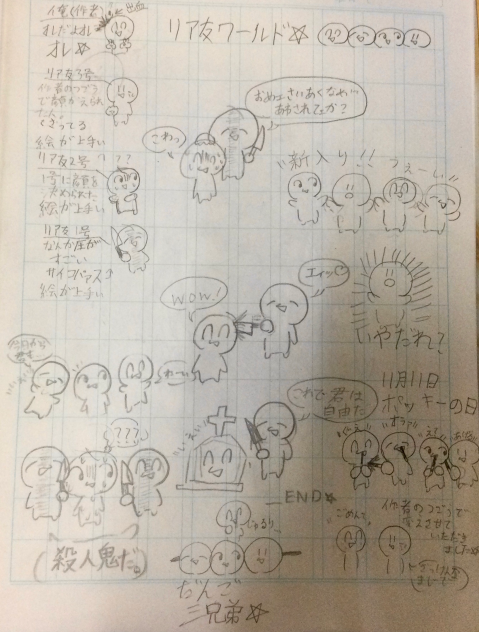 リア友ワールド☆
俺(作者)
オレだよオレ
オレ☆
リア友3号
作者のつごう
で顔がえられ
た人。
くさってる
絵が上手い
リア友2号
???
1号に名前を
決められた
絵が上手い
リア友1号
なんか圧が
すごい
サイコパス
絵が上手い
こわっ
新入り!!
うぇーい!!
いやだれ?
WOW!
エイッ
わーい
これで君は
自由だ
いえい
END☆
???
(殺人鬼だ。)
11月11日
ポッキーの日
オラァ
ごめんて
作者のつごうで
変えさせて
いただき
ました☆
じゅるり
だんご
三兄弟☆